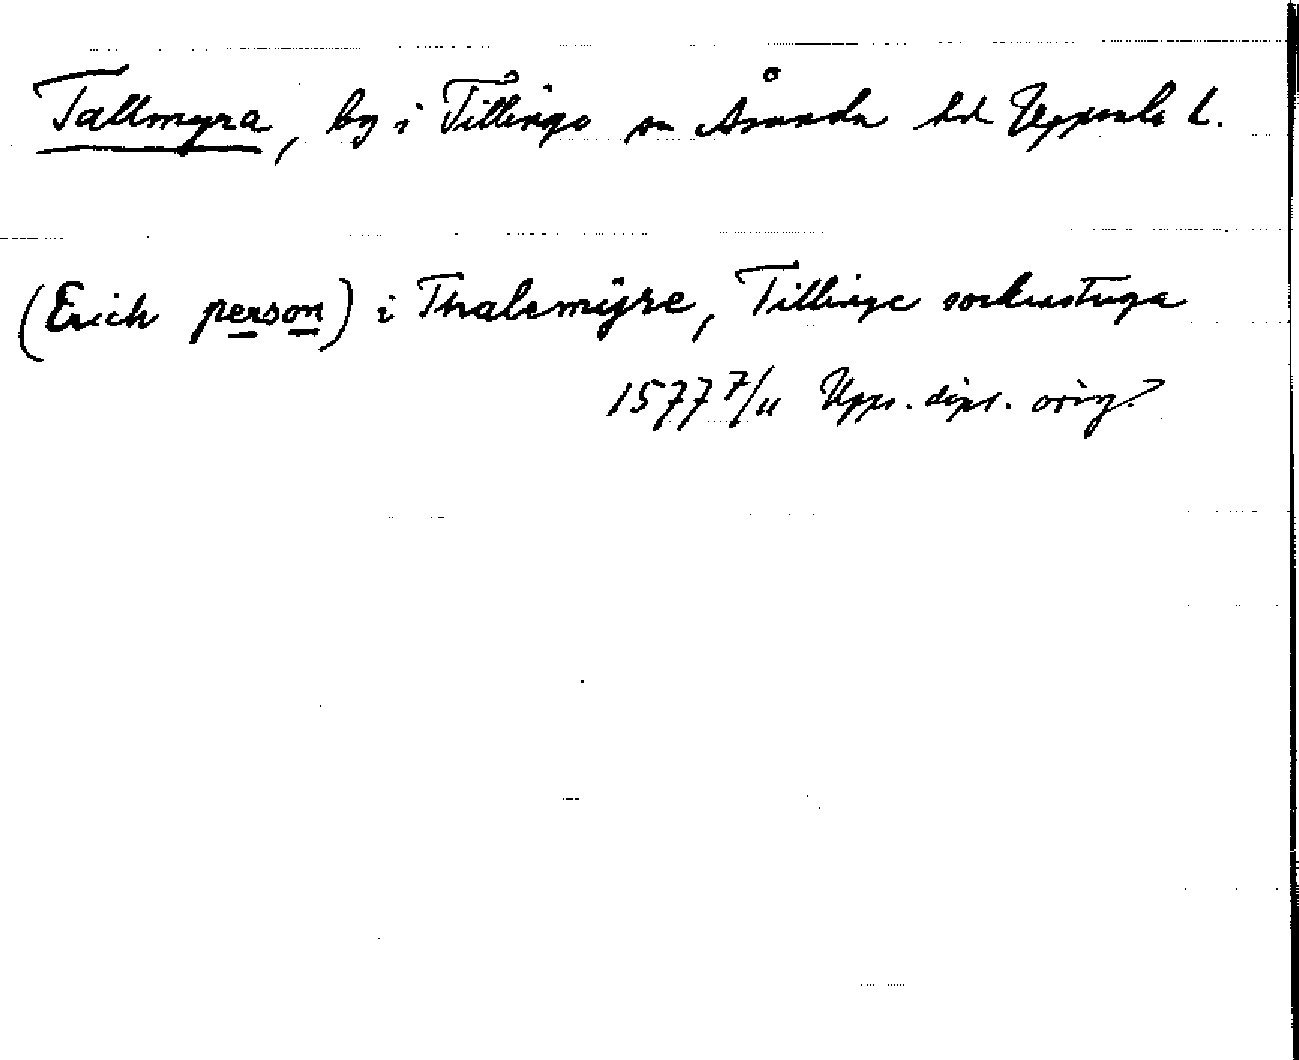 Tallmyra, by i Tillinge sn Åsunda hd Uppsala l.
(Erich person) i Thalemÿre, Tillinge sockustuga
1577 7/11 Upps. dipl. orig.